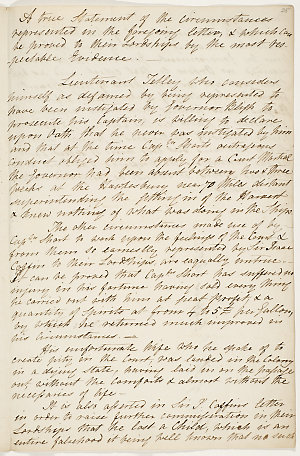 A true Statement of the Circumstances
represented in the foregoing letters, & which can
be proved to their Lordships by the most res-
pectable Evidence. —
Lieutenant Tetley who considers
himself as defamed by being represented to
have been instigated by Governor Bligh to
prosecute his Captain, is willing to declare
upon Oath that he never was instigated by him
and that at the time Captn. Shorts outrageous
conduct obliged him to apply for a Court Martial
the Governor had been absent between two & three
Weeks at the Hawkesbury near 70 Miles distant
superintending the getting in of the Harvest
& knew nothing of what was doing in the Ships.
The other circumstances made use of by
Captn. Short to work upon the feelings of the Court &
from them so earnestly represented by Sir Isaac
Coffin to their Lordships, are equally untrue.
It can be proved that Captn. Short has suffered no
injury in his fortune having sold every thing
he carried out with him at great profit, & a
quantity of Spirits at from 4 to 5 £ per Gallon,
by which he returned much improved in
his circumstances. —
His unfortunate Wife who he spoke of to
create pity in the Court, was landed in the Colony
in a dying state, having laid in on the passage
out, without the comforts & almost without the
necessaries of life —
It is also asserted in Sir I. Coffins letter
in order to raise further commiseration in their
Lordships that he lost a Child, which is an
entire falsehood it being well known that no such